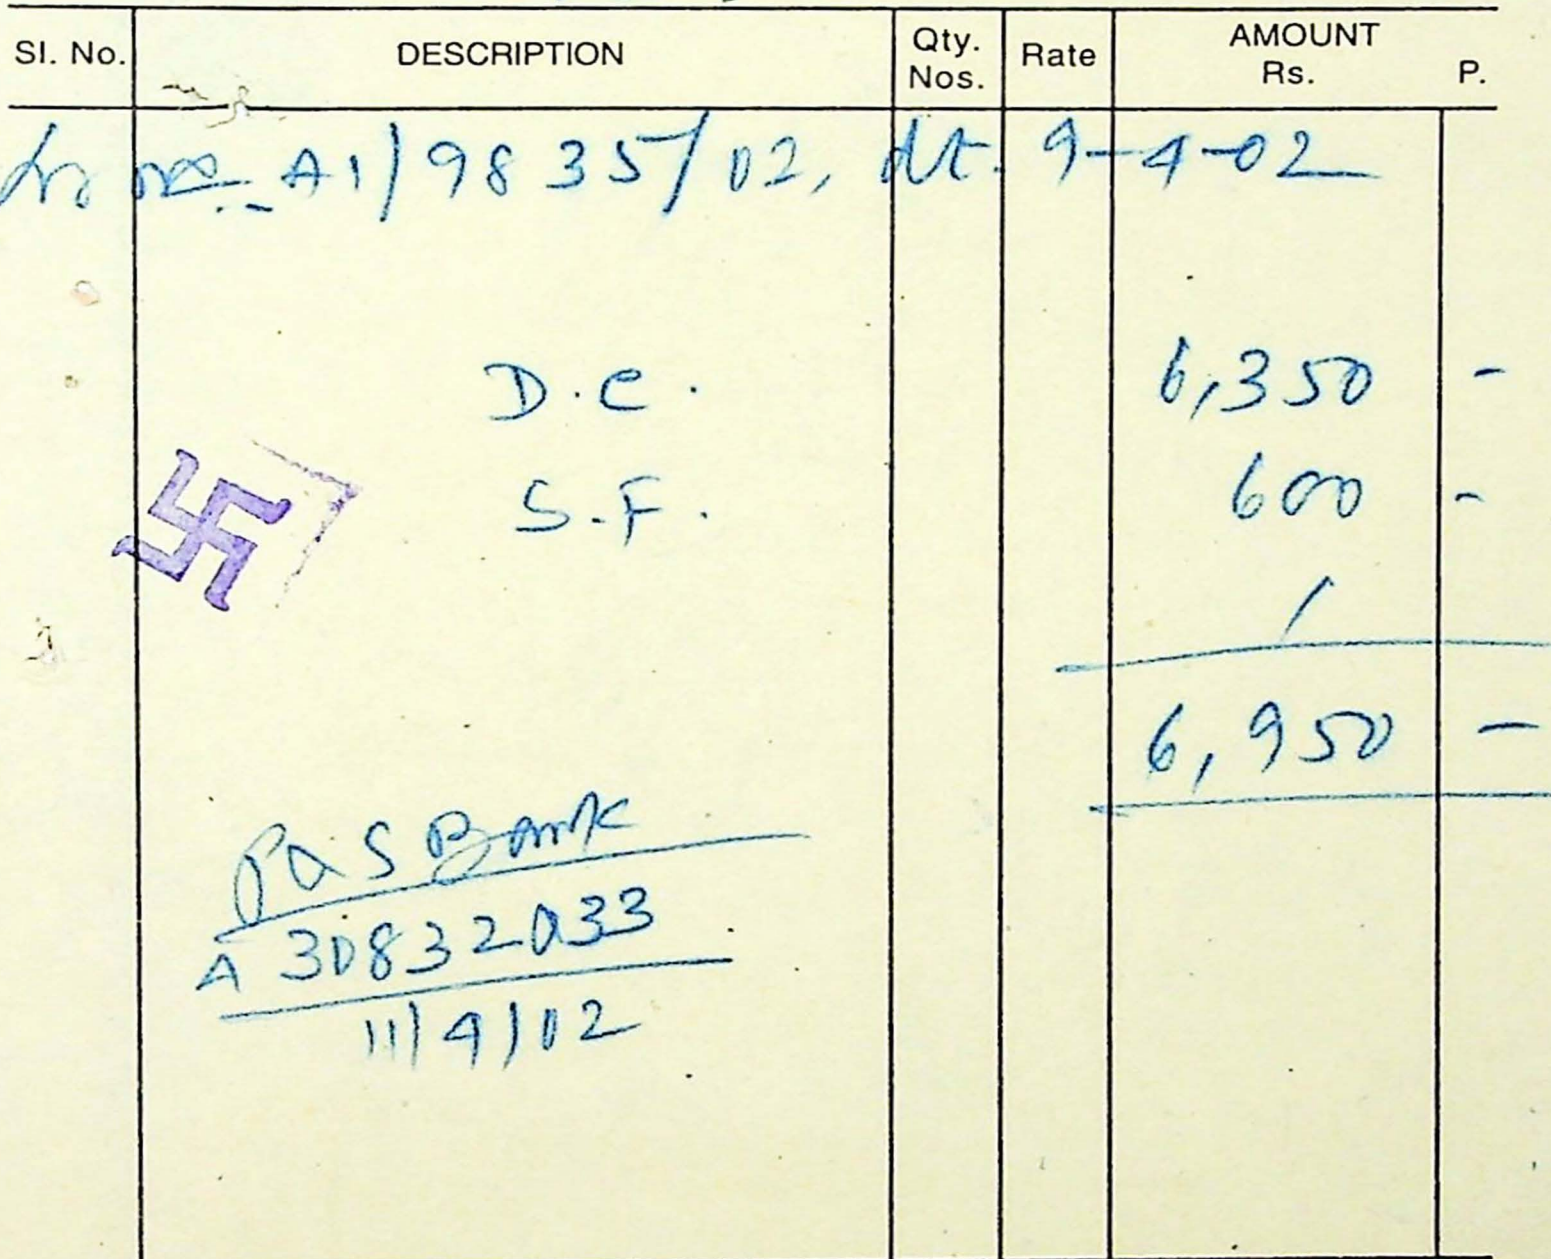 Sl. No. DESCRIPTION Qty. Nos. Rate AMOUNT Rs. P.
A1/9835/02, dt. 9-4-02
D.C. 6,350 -
S.F. 600 -
6,950 -
Bank
A 30832033
11/4/02